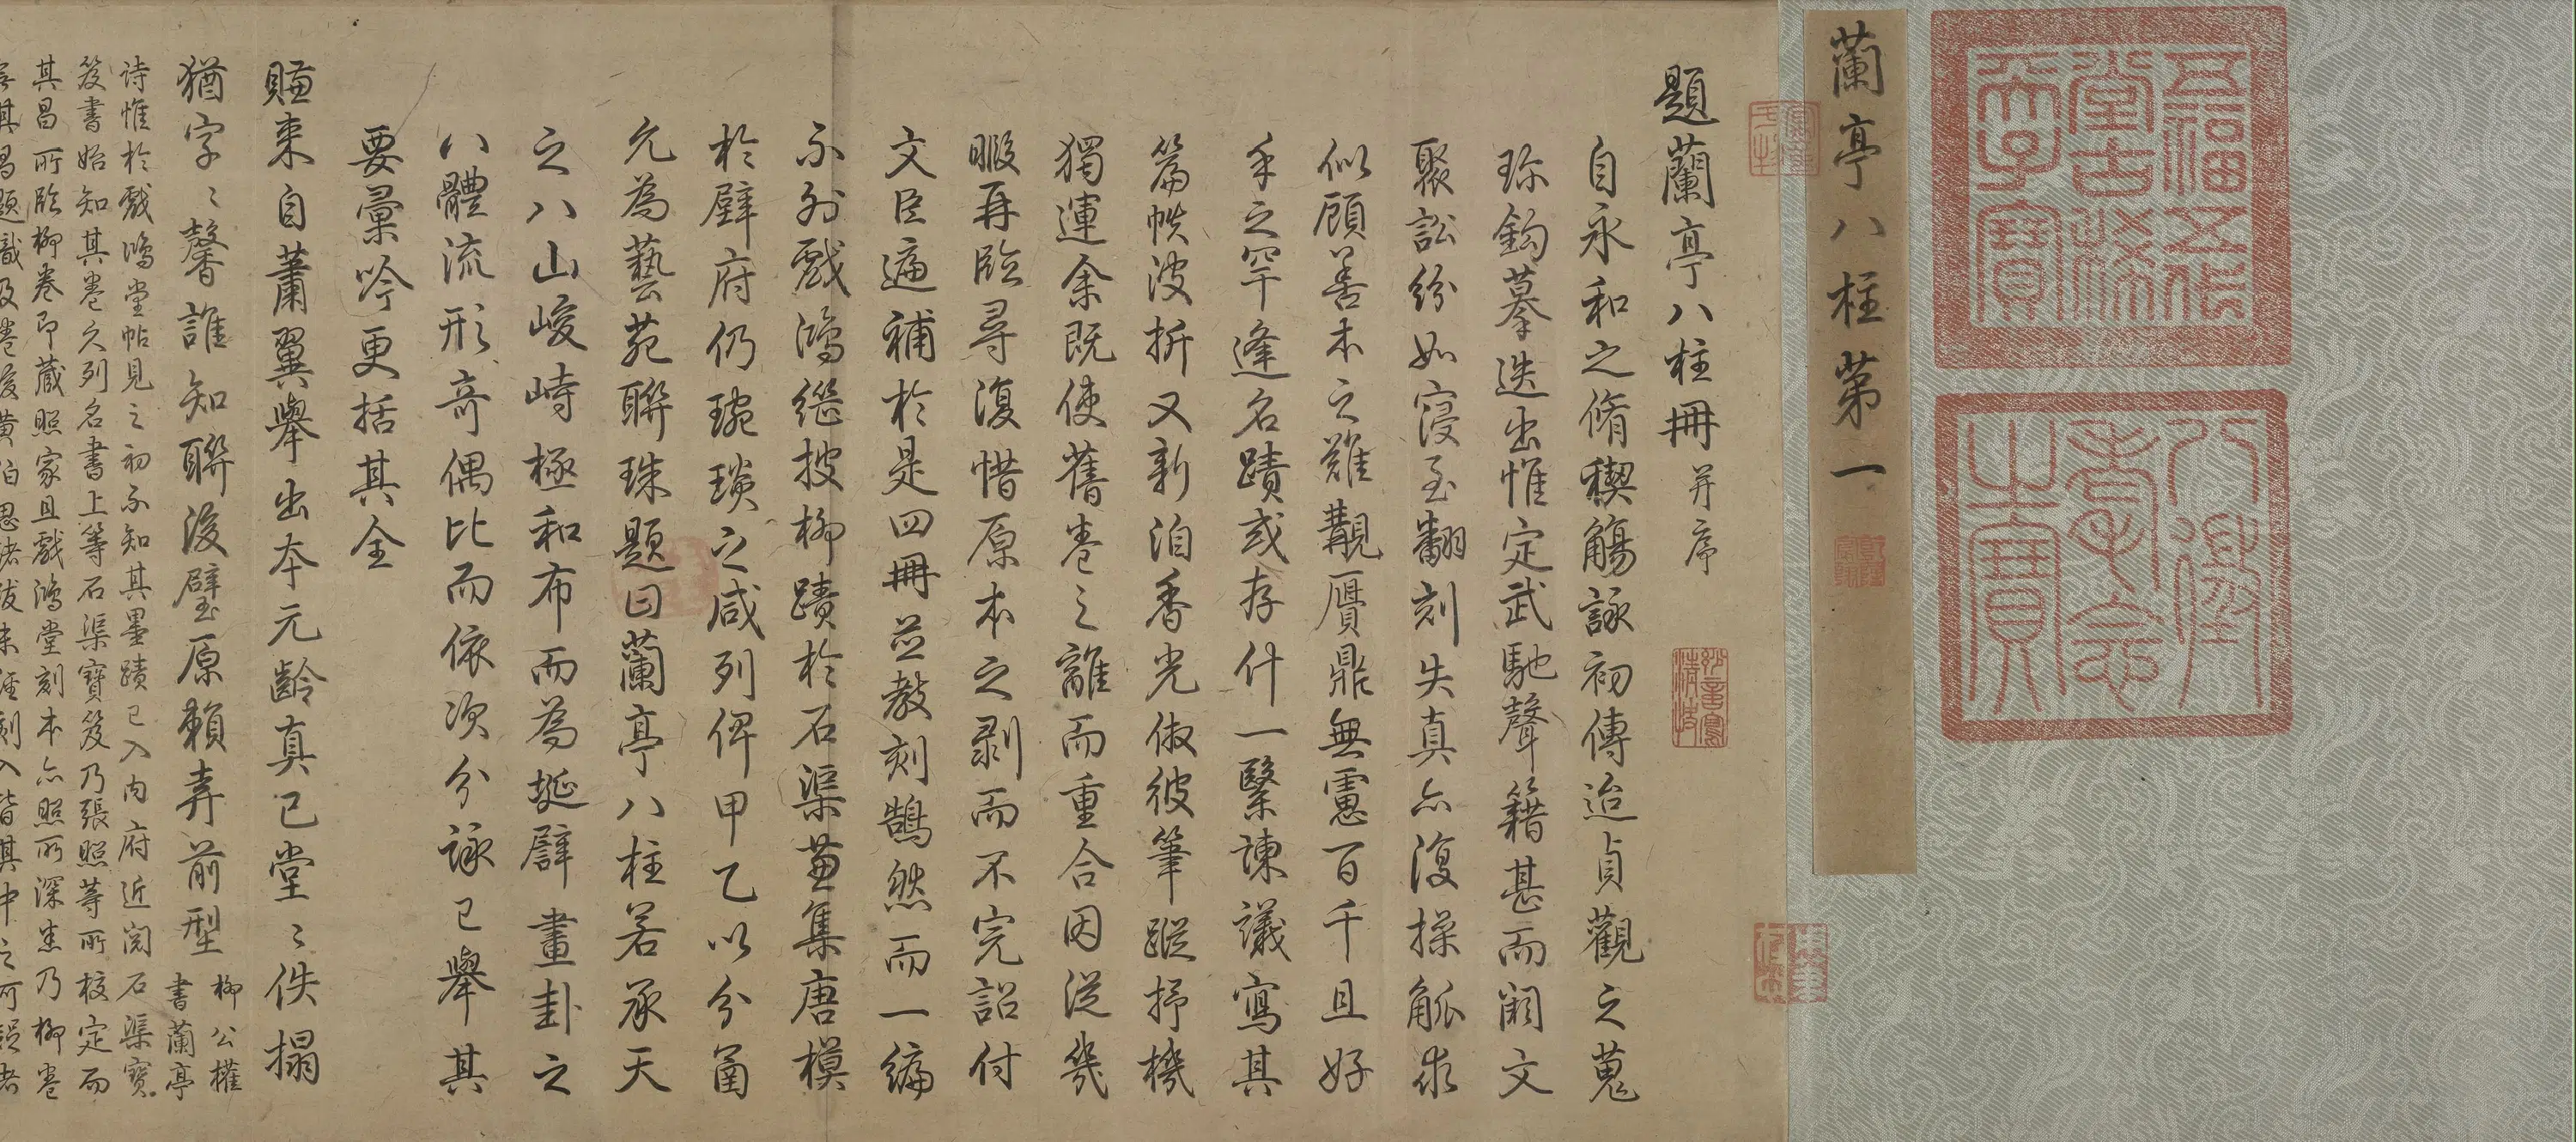 五福五代
堂古稀
天子寶
八徵
耄念
之寶
蘭亭八柱第一
題蘭亭八柱冊并序
自永和之脩稧觴詠初傳迨貞觀之蒐
珎鈎摹迭出惟定武馳聲籍甚而闕文
聚訟紛如寖至翻刻失真亦復操觚求
似顧善本之難觀贋鼎無慮百千且好
手之罕逢名蹟或存什一緊諫議寫其
篇帙波折又新洎香光倣彼筆蹤抒機
獨運余既使舊卷之離而重合因從幾
暇再臨尋復惜原本之剥而不完詔付
文臣遍補於是四冊並教刻鵠然而一編
不列戲鴻繼搜柳蹟於石渠兼集唐模
於壁府仍琬琰之咸列俾甲乙以分函
允為藝苑聯珠題曰蘭亭八柱若承天
之八山峻峙極和布而為埏闢畫卦之
八體流形奇偶比而依次分詠已舉其
要彙吟更括其全
賺来自蕭翼舉出本元齡真已堂〻佚搨
猶字〻馨誰知聯後璧原賴弆前型柳公權
書蘭亭
詩惟於戲鴻堂帖見之初不知其墨蹟已入内府近閲石渠寶
笈書始知其卷久列名書上等石渠寶笈乃張照等所校定而
其昌所臨柳卷即藏照家且戲鴻堂刻本亦照所深悉乃柳卷
其昌題識及卷後黄伯思諸跋未經刻入皆其中之可疑者